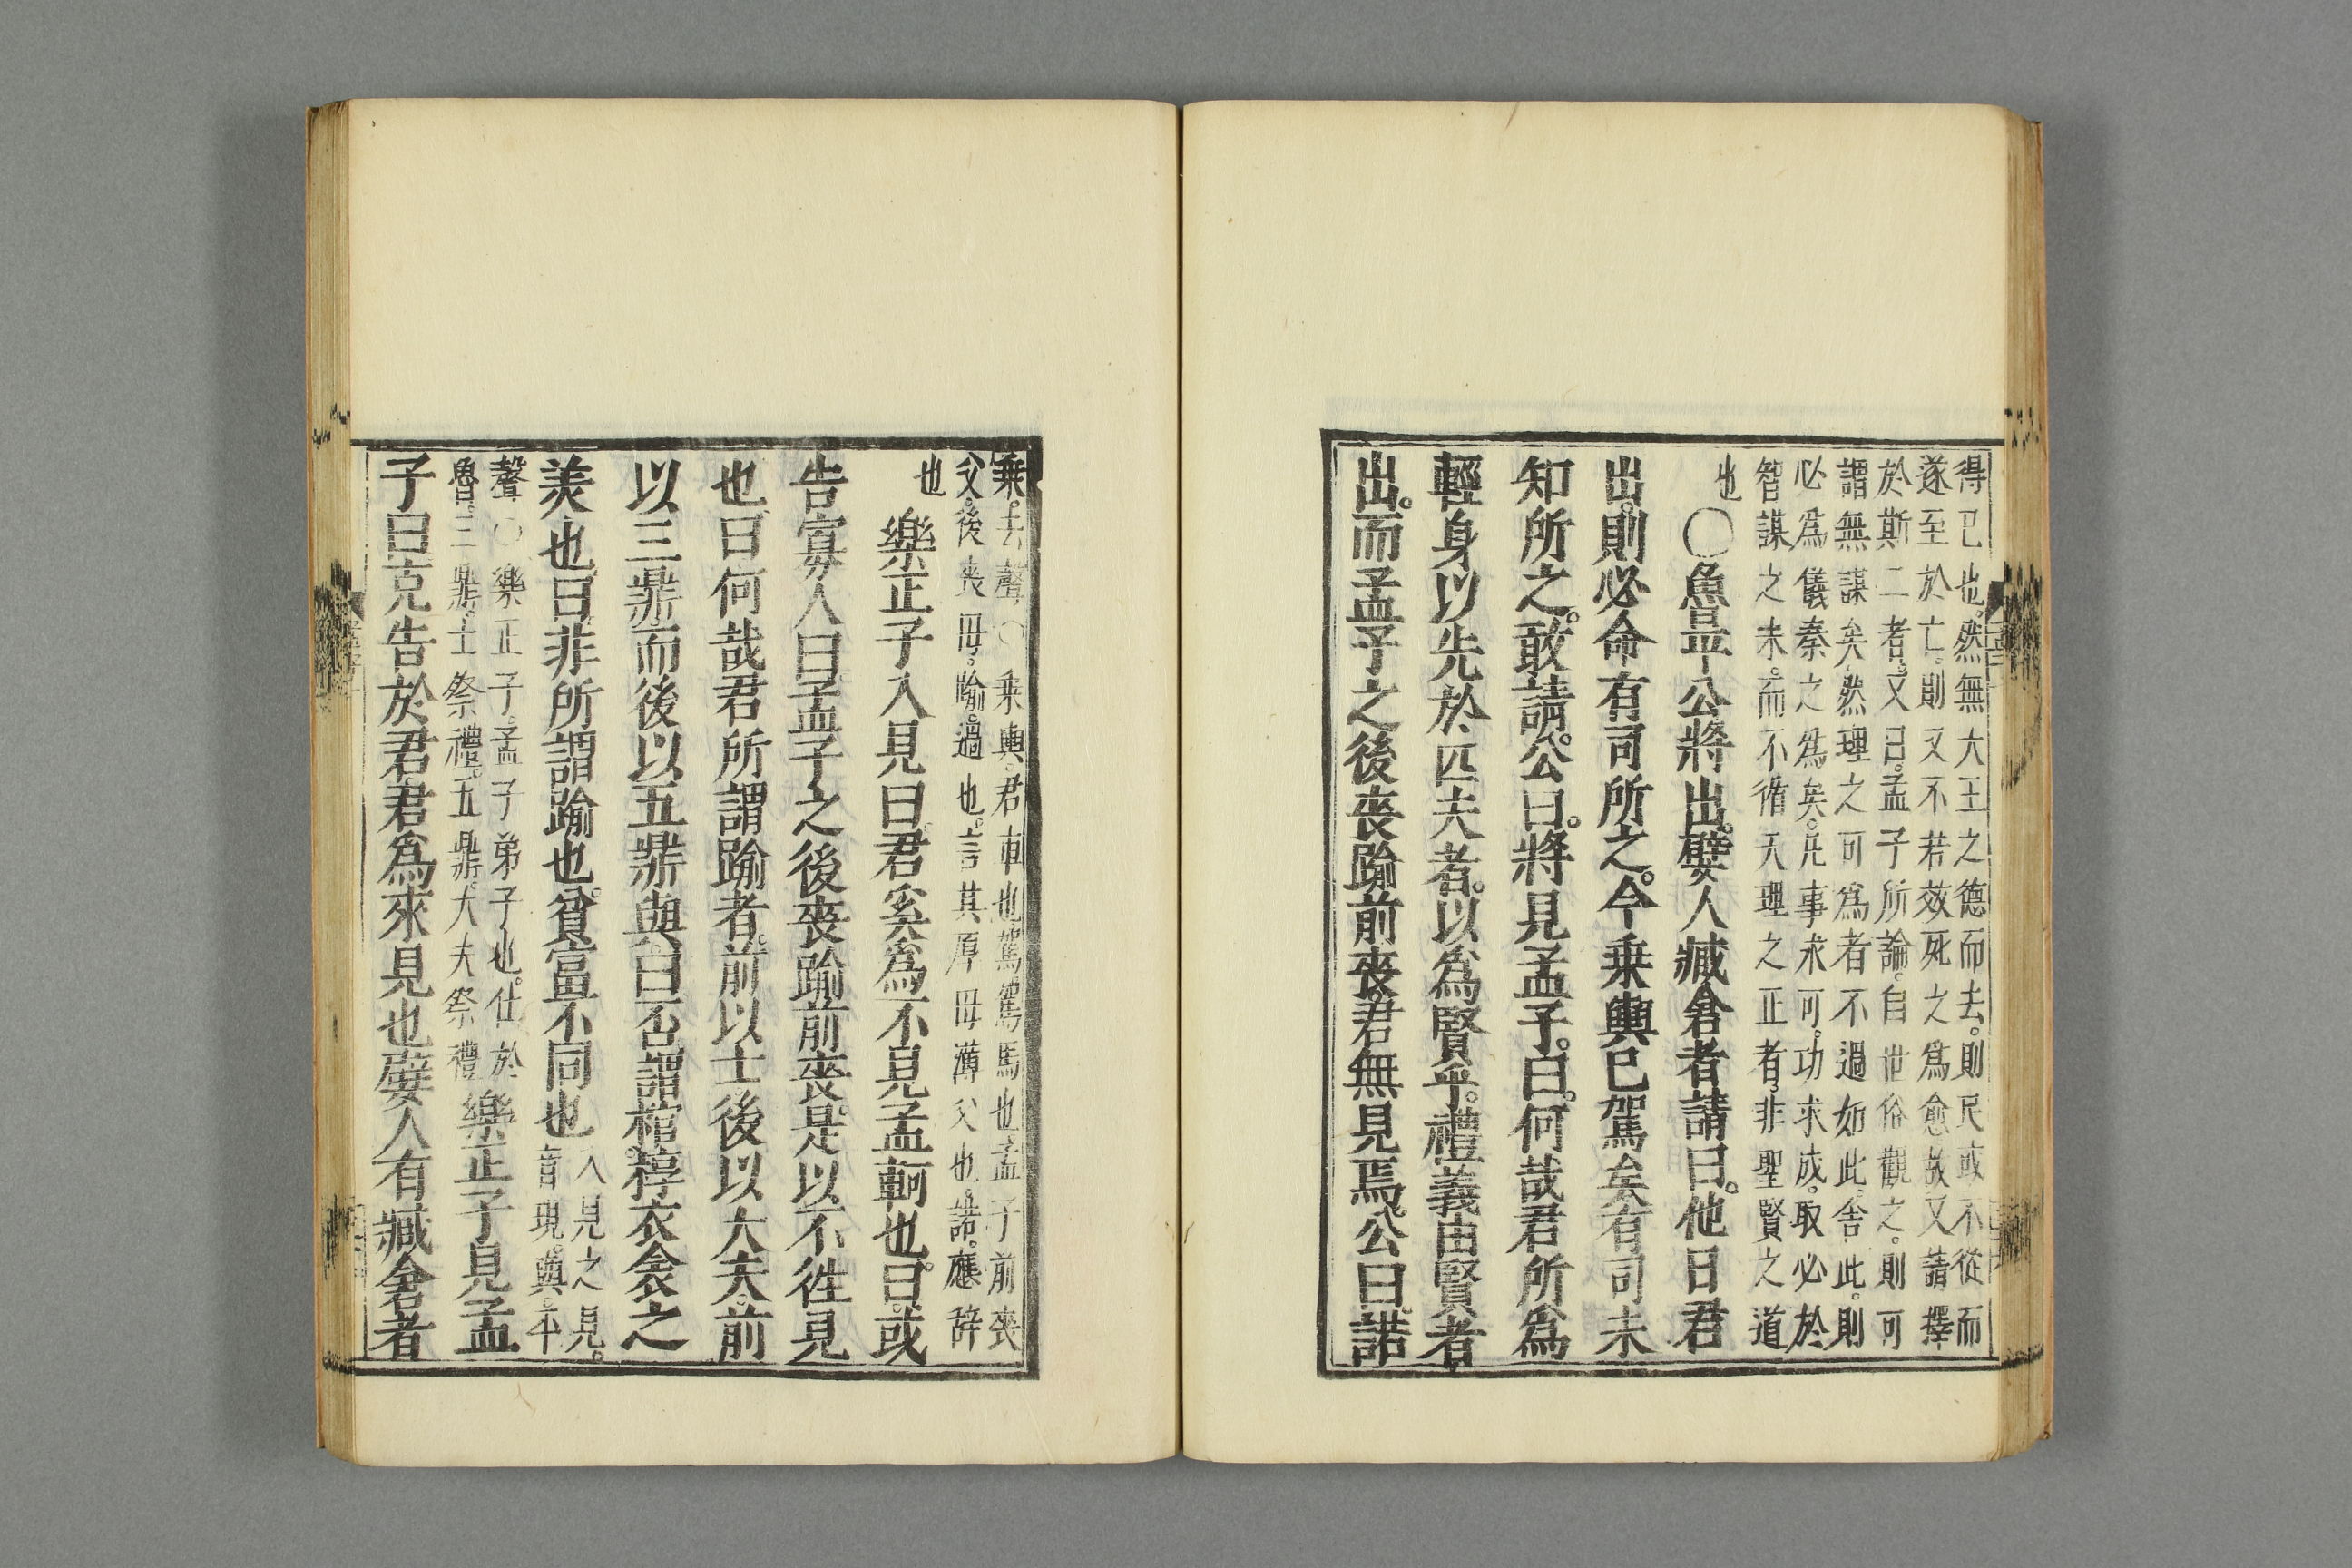 得已也。然無大王之德而去。則民或不從而
遂至於亡。則又不若效死之爲愈。故又請擇
於斯二者。又曰。孟子所論。自世俗觀之。則可
謂無謀矣。然理之可爲者。不過如此。舍此。則
必爲儀秦之爲矣。凡事求可。功求成。取必於
智謀之末。而不循天理之正者。非聖賢之道
也
〇魯平公將出。嬖人臧倉者請曰。他日君
出。則必命有司所之。今乗輿已駕矣有司未
知所之。敢請。公曰。將見孟子。曰。何哉君所爲
輕身以先於匹夫者。以爲賢乎。禮義由賢者
出。而孟子之後喪踰前喪君無見焉。公曰。諾
乗。去聲〇乗輿。君車也駕。駕馬也孟子前喪
父。後喪母。踰。過也。言其厚母薄父也。諾。應辭
也
樂正子入見曰。君奚爲不見孟軻也。曰。或
告寡人曰。孟子之後喪踰前喪。是以不徃見
也曰何哉君所謂踰者。前以士後以大夫。前
以三鼎而後以五鼎與。曰否謂棺椁衣衾之
美也。曰。非所謂踰也。貧富不同也
入見之見。
音現。與。平
聲〇樂正子。孟子弟子也。仕於
魯。三鼎。士祭禮。五鼎。大夫祭禮
樂正子見孟
子曰克告於君君爲來見也嬖人有臧倉者